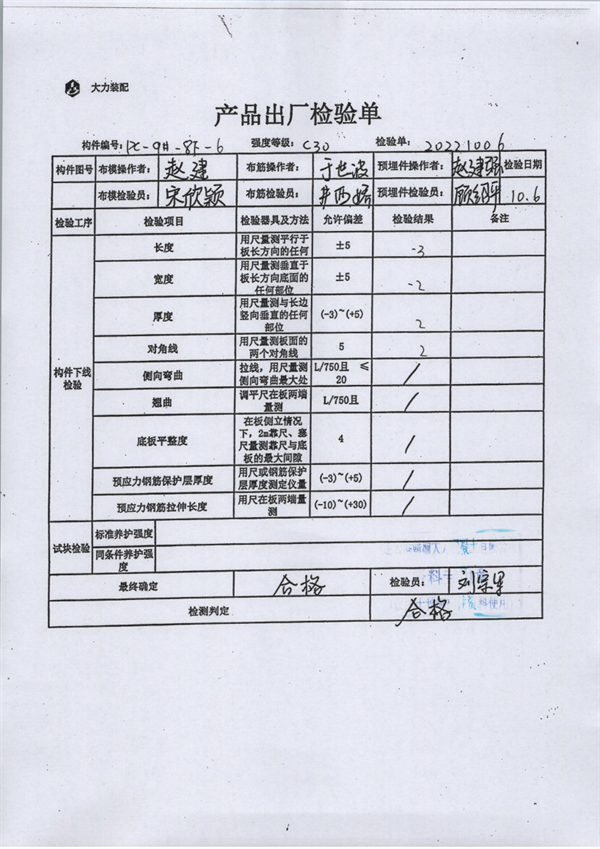 大力装配
产品出厂检验单
构件编号: 强度等级: C30 检验单: 20221006
构件图号 布模操作者: 赵建 布筋操作者: 于世波 预埋件操作者: 赵建强 检验日期
布模检验员: 宋欣颖 布筋检验员: 预埋件检验员: 10.6
检验工序 检验项目 检验器具及方法 允许偏差 检验结果 备注
构件下线检验
长度 用尺量测平行于板长方向的任何 ±5 -3
宽度 用尺量测垂直于板长方向底面的任何部位 ±5 -2
厚度 用尺量测与长边竖向垂直的任何部位 (-3)~(+5) 2
对角线 用尺量测板面的两个对角线 5 2
侧向弯曲 拉线，用尺量测侧向弯曲最大处 L/750且 ≤20 /
翘曲 调平尺在板两端量测 L/750且 /
底板平整度 在板侧立情况下，2m靠尺、塞尺量测靠尺与底板的最大间隙 4 /
预应力钢筋保护层厚度 用尺或钢筋保护层厚度测定仪量 (-3)~(+5) /
预应力钢筋拉伸长度 用尺在板两端量测 (-10)~(+30) /
试块检验 标准养护强度
同条件养护强度
最终确定 合格 检验员:
检测判定 合格